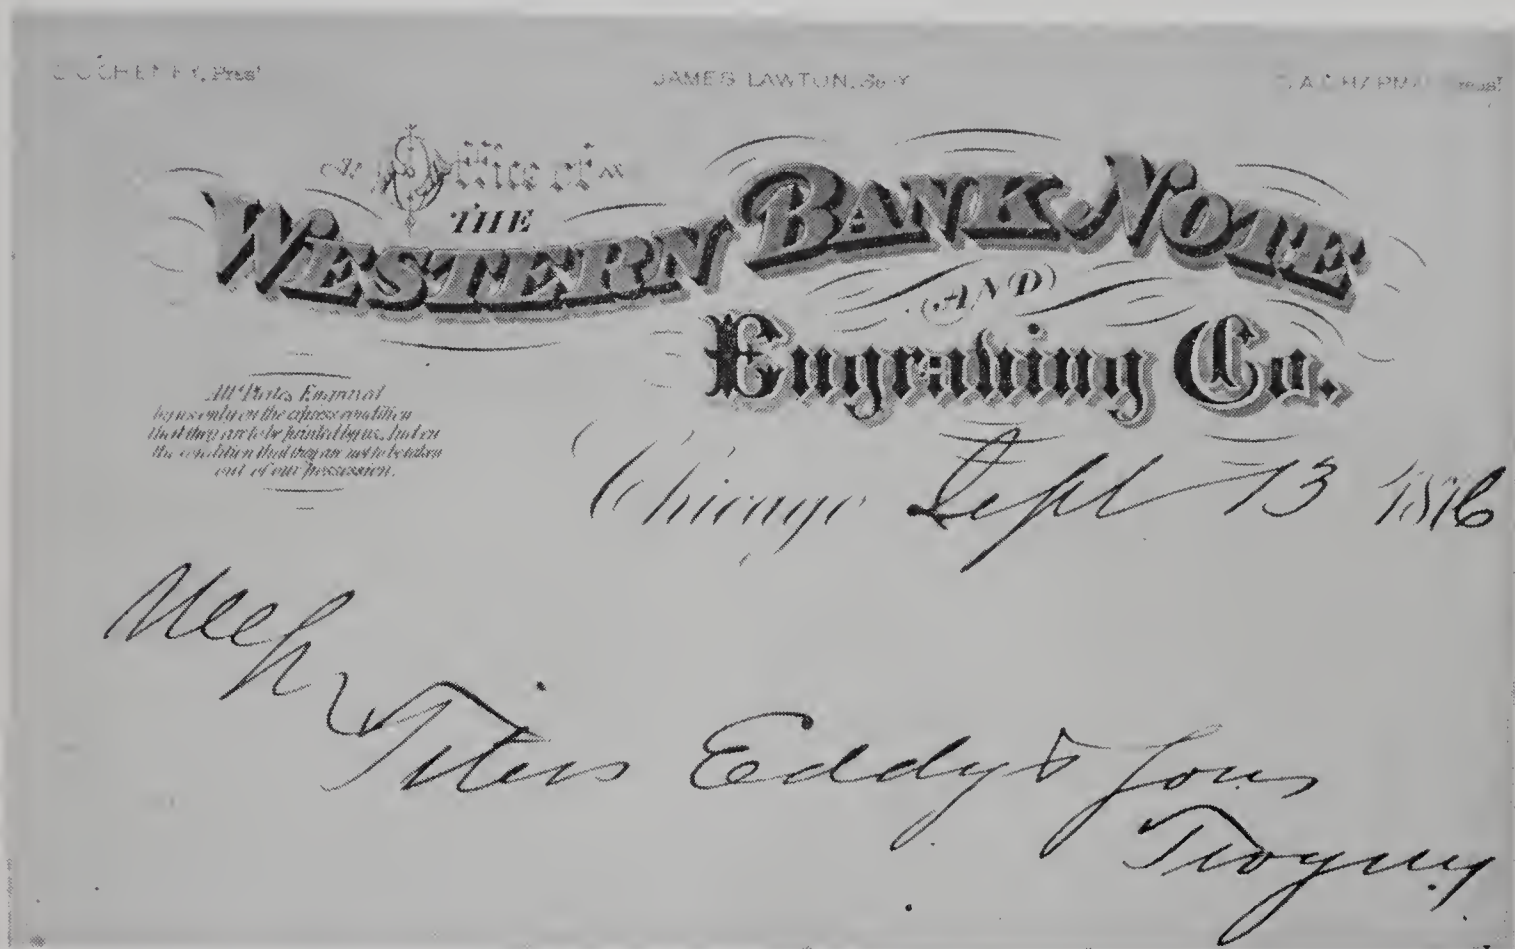 C. C. CHENEY, Pres't JAMES LAWTON, Sec'y
Office of
THE
WESTERN BANK NOTE
AND
Engraving Co.
All Plates Engraved
by us only on the express condition
that they are to be printed by us, and on
the condition that they are not to be taken
out of our possession.
Chicago Sept 13 1876
Titus Eddy & Sons
Troy NY